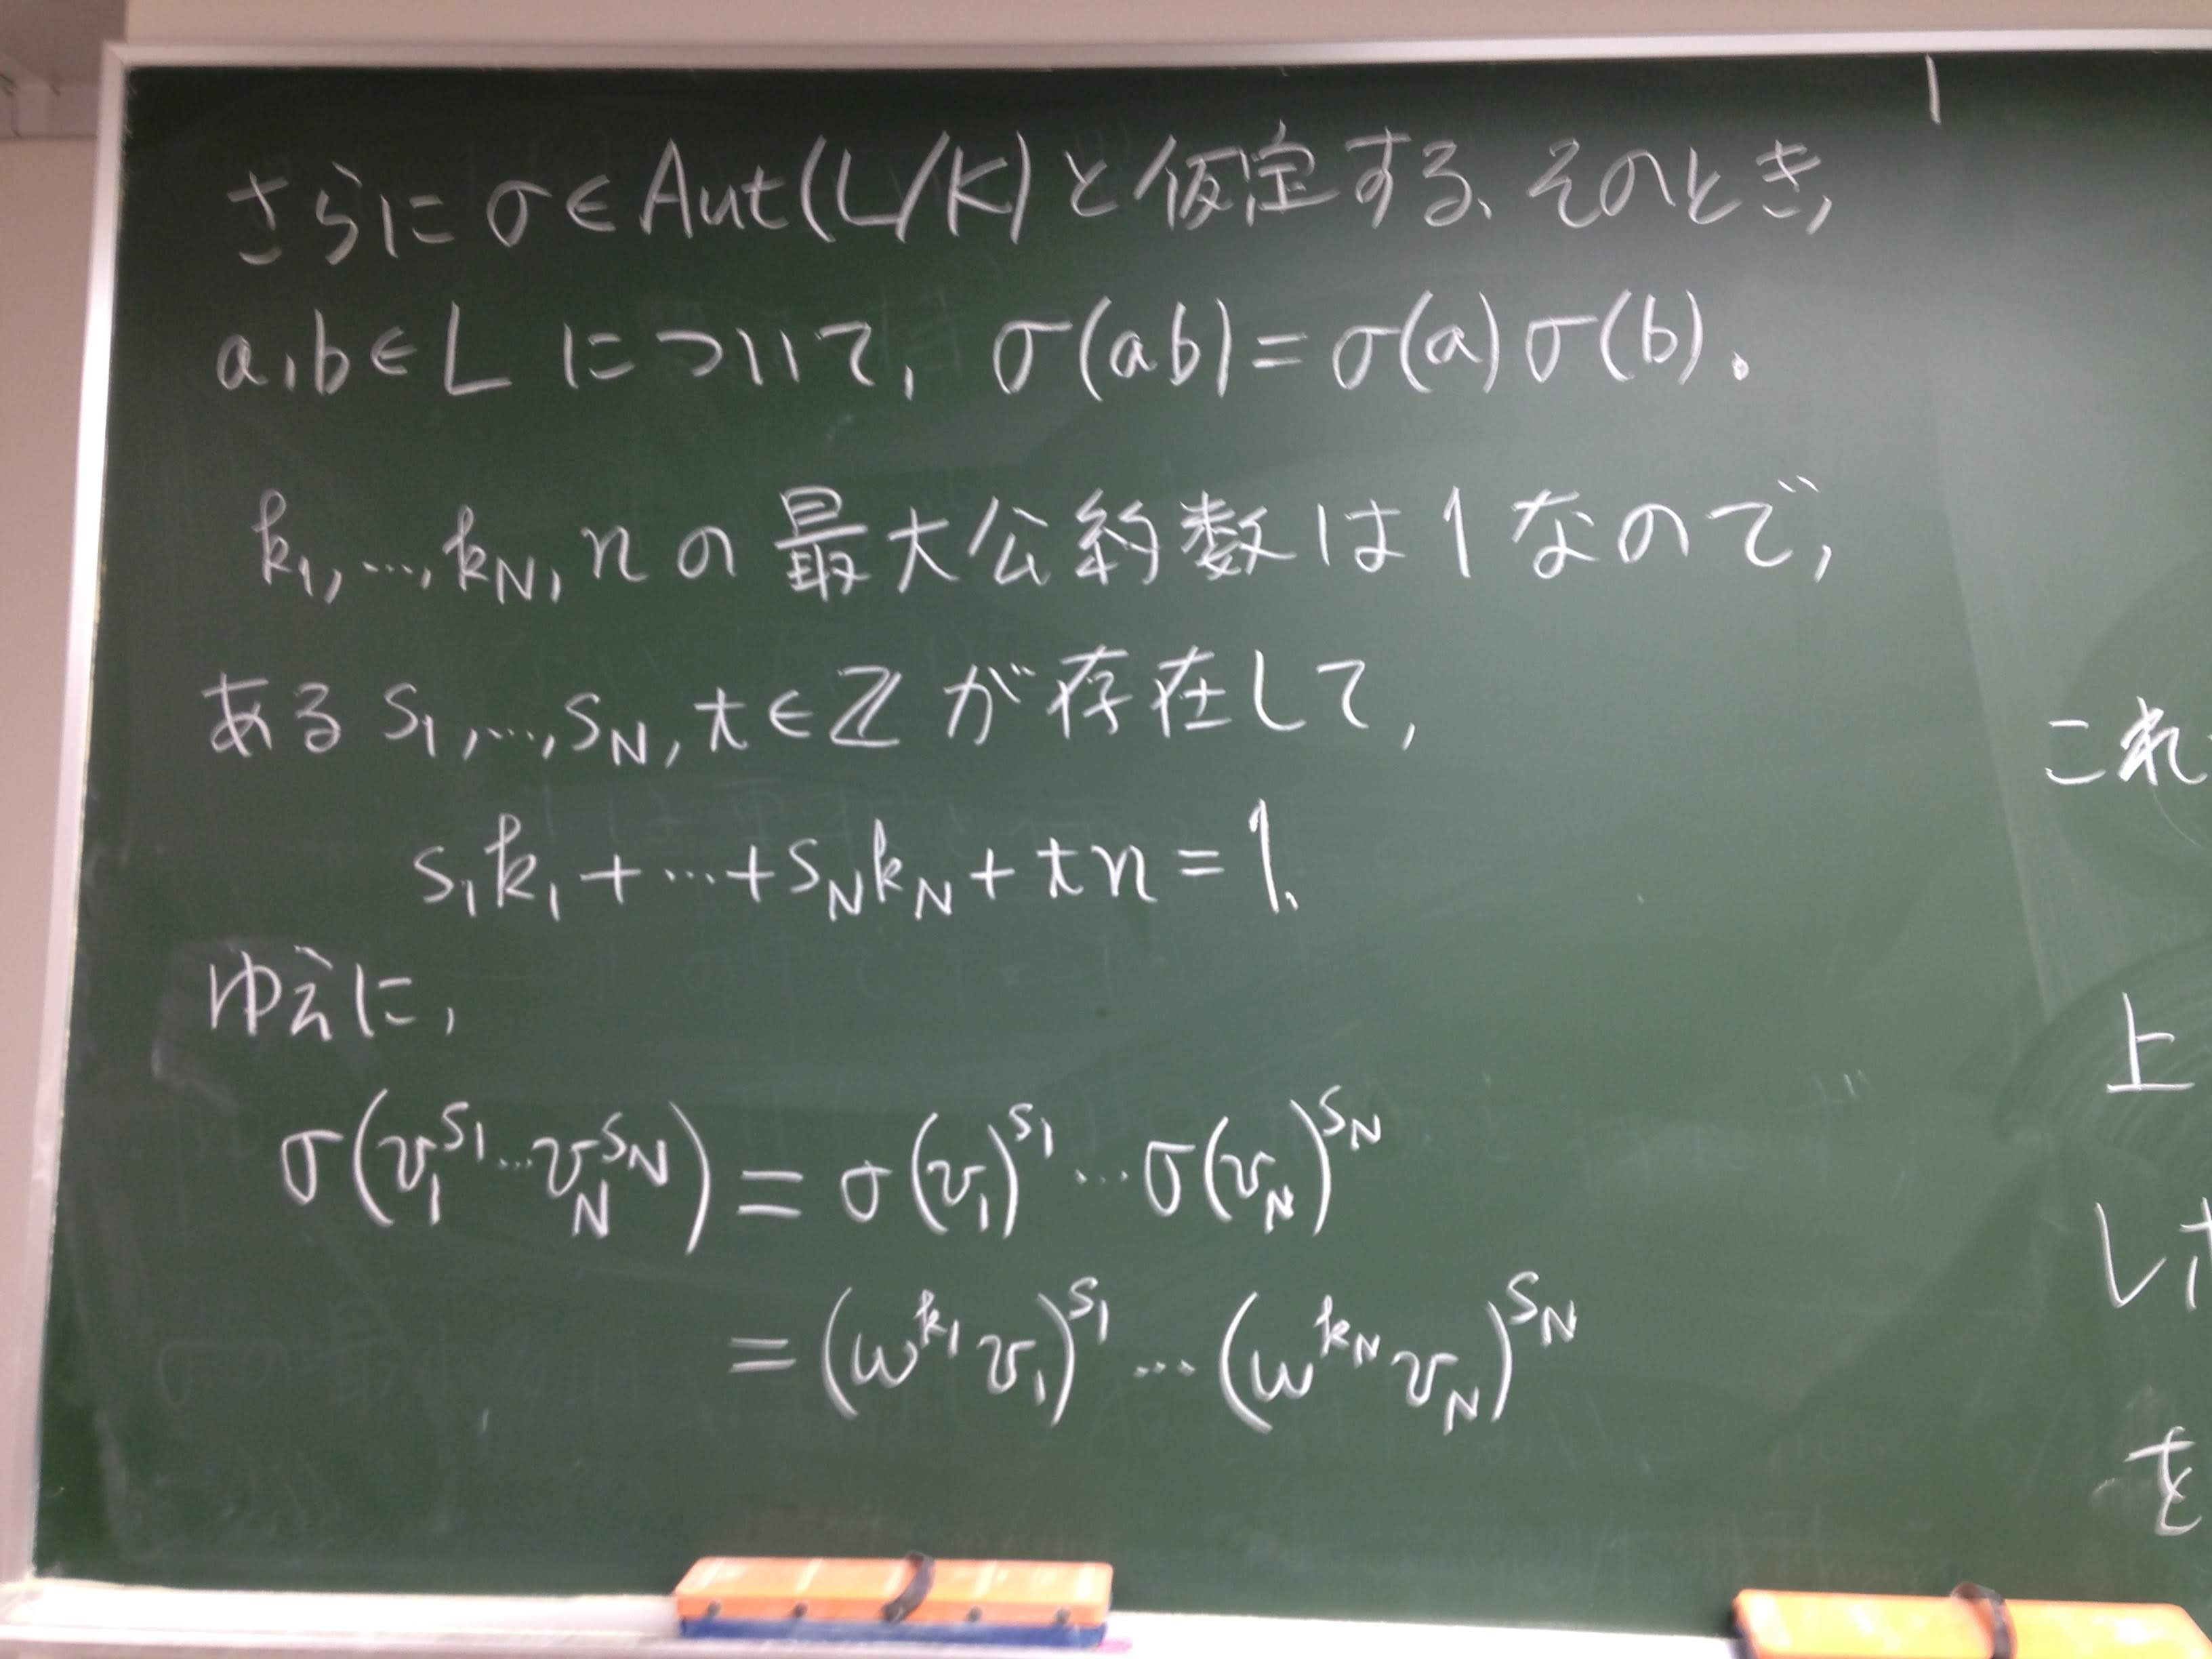 さらに σ∈Aut(L/K)と仮定する、そのとき,
a,b∈L について, σ(ab)=σ(a)σ(b).
k₁,…,k_N, n の最大公約数は1なので,
ある s₁,…,s_N, t∈ℤ が存在して,
s₁k₁+…+s_Nk_N+tn=1.
ゆえに,
σ(v₁^{s₁}…v_N^{s_N})=σ(v₁)^{s₁}…σ(v_N)^{s_N}
=(ω^{k₁}v₁)^{s₁}…(ω^{k_N}v_N)^{s_N}
これ
上
レポ
を